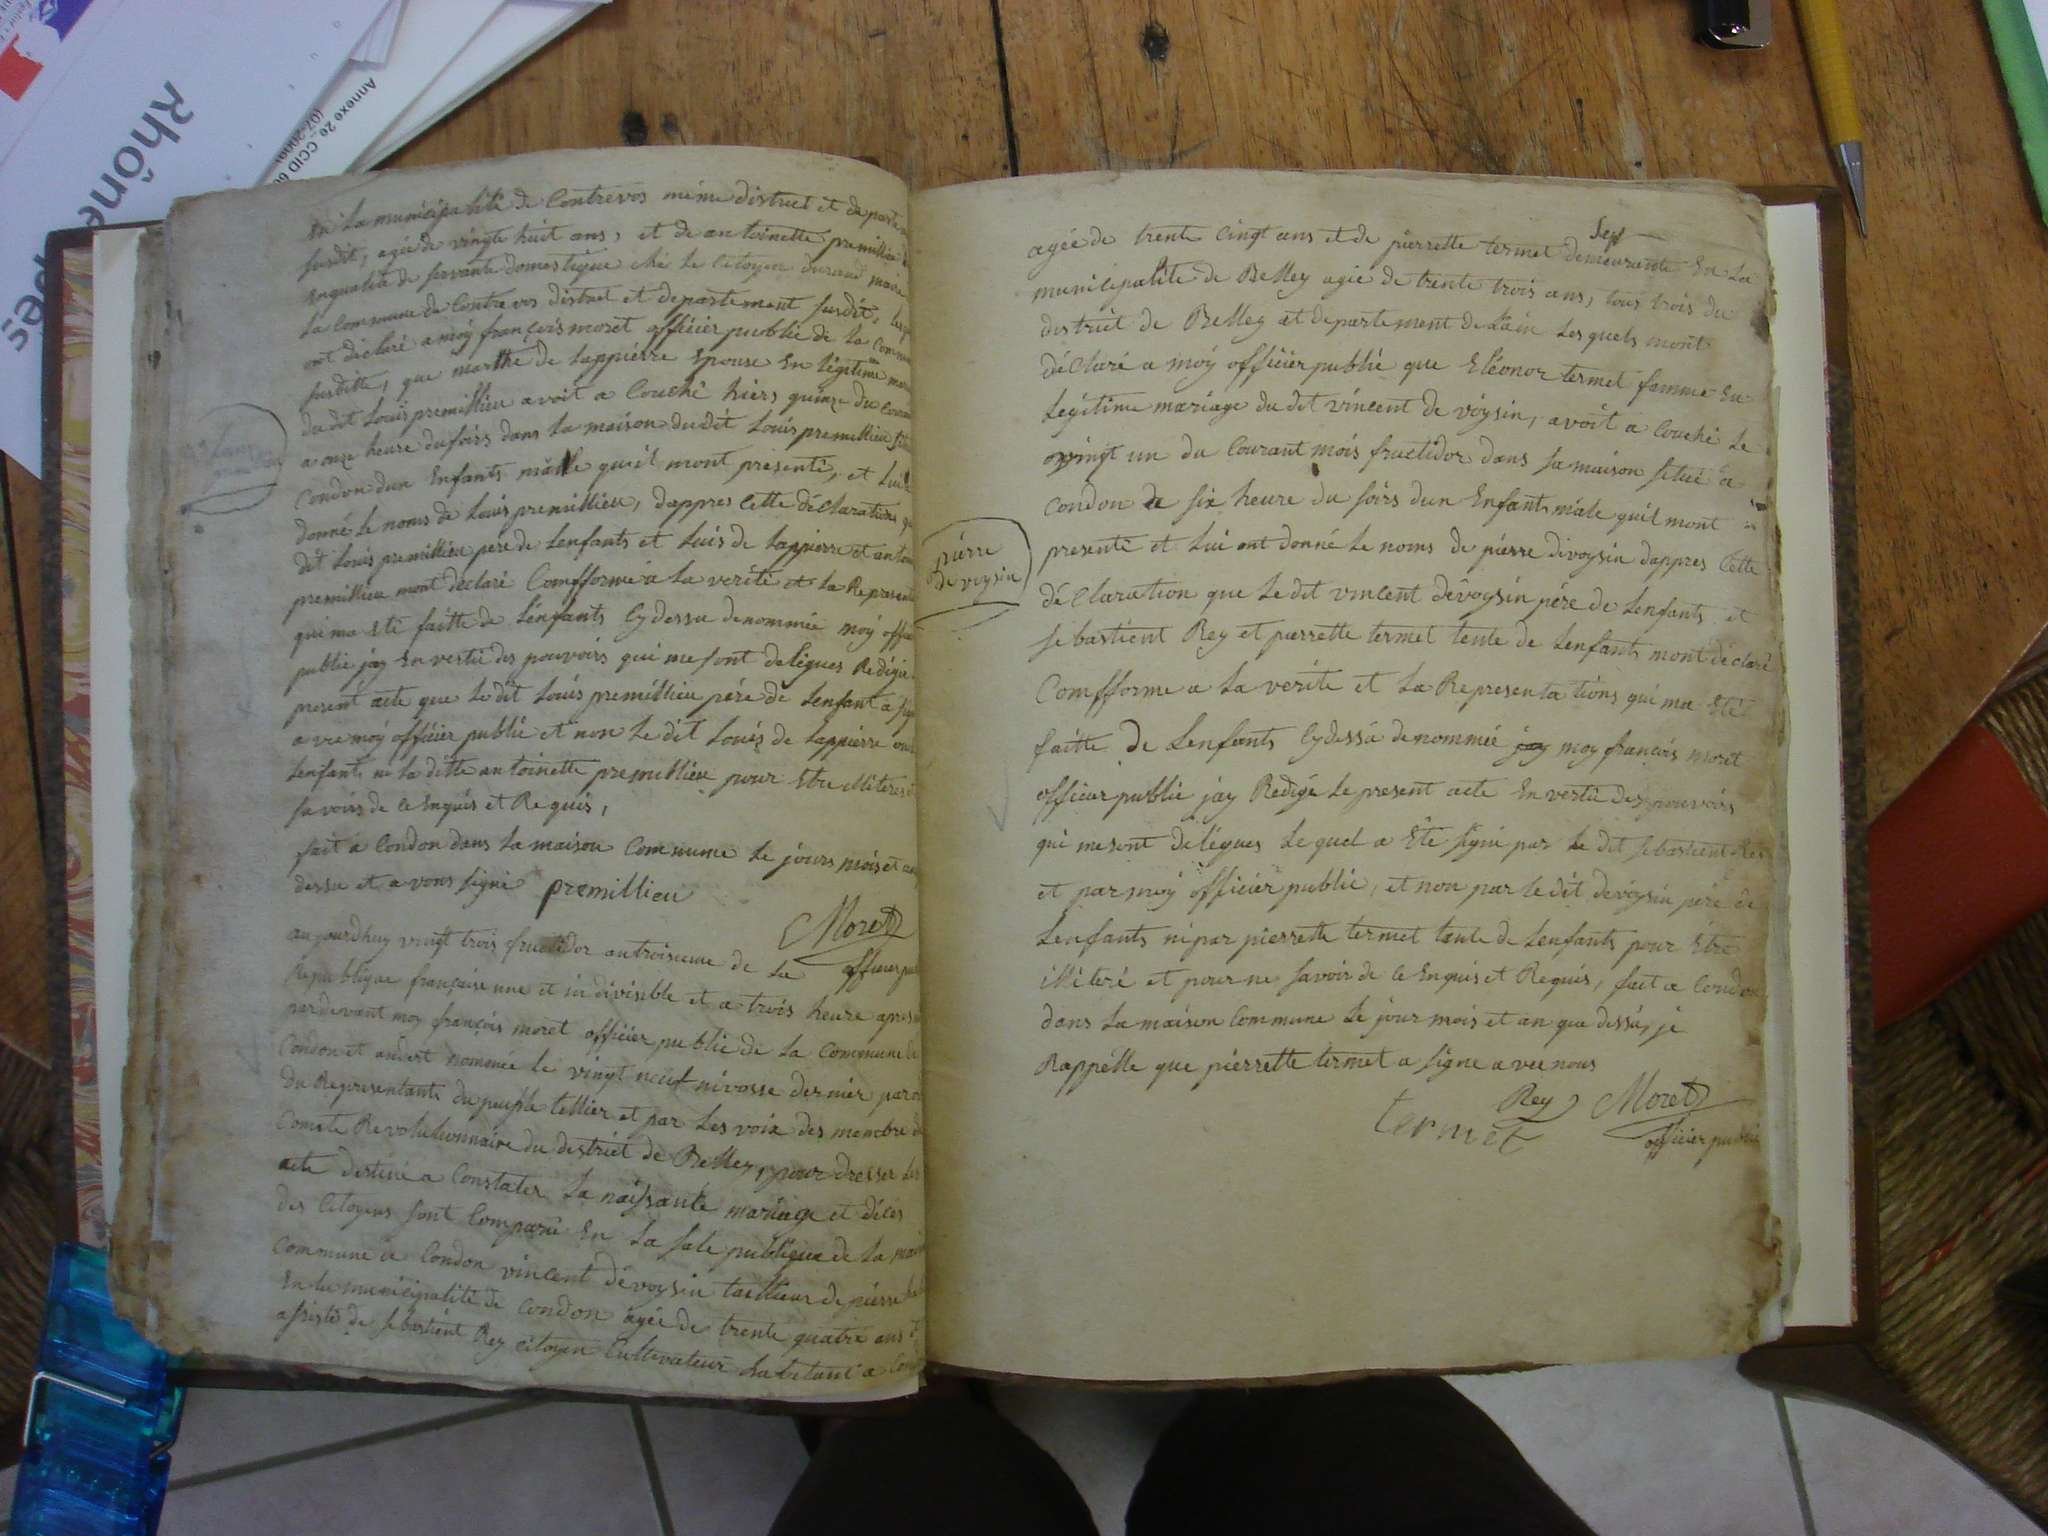 Rhône
Annexe 2e CCID
En la municipalité de Contrevos même distruct et departe
susdit, agée de vingte huit ans, et de antoinette premillieu
Enqualité de servante domestique ché le citoyen durand maire
la Commune de Contrevos distruct et departement susdit,
ont déclaré a moÿ françois moret officier publie de la Comm
susditte, que marthe de lappiérre Epouse En légitime
du dit Louis premillieu avoit a Couché hiers quinze du Couran
a onze heure du soirs dans la maison du dit Louis premillieu
Condon dun Enfants mâlle quil mont presenté, et Lui
donné le noms de Louis premillieu, dappres Cette déClarations
dit Louis premillieu pere de Lenfants et Luis de Lappierre et
premillieu mont déclaré Comfformé a la verité et la Represent
qui ma Eté faitte de Lenfants Cydessu denommée moÿ offi
publie jay En vertu des pouvoirs qui me sont delégues Redigé
present acte que le dit Louis premillieu pére de Lenfant a
avec moÿ officier publié et non le dit Louis de Lappierre
Lenfants ni la ditte antoinette premillieu pour Etre illiteré
savoirs de ce Enquis et Requis,
fait a Condon dans la maison Commune le jours mois et an
dessu et avons signé premillieu
Moret
officier
aujourdhuy vingt trois fructidor an troisieme de la
Republique française une et indivisible et a trois heure apres
pardevant moy françois moret officier publie de la Commune de
Condon et andert nommée le vingt neuf nivosse dernier par
du Representants du peuple tellier et par les voix des membre
Comite Revolutionnaire du distrièt de Belley, pour dresser les
acte destiné a Constater la naissante mariage et déces
des Citoyens sont Comparu En la sale publique de la
Commune a Condon vincent dévoysin tailleur de piérre
En la municipalité de Condon agée de trente quatre ans
assisté de sébastient Rey citoyen Cultivateur habitant a
pierre
devoysin
sept
agée de trente cingt ans et de pierrette termet demeurante En la
municipalite de Belley agée de trente trois ans, tous trois du
distruit de Belley et departement de Lain Les quels mont
déClaré a moÿ officier publié que Eléonor termet femme En
Legitime mariage du dit vincent de voysin, avoit a Couché le
vingt un du Courant mois fructidor dans sa maison situé a
Condon a six heure du soirs dun Enfants mâle quil mont
presenté et Lui ont donné le noms de pierre divoysin dappres Cette
déClaration que le dit vincent dévoysin pére de Lenfants et
sebastient Rey et pierrette termet tente de Lenfants mont déclaré
Comfforme a la verite et la Representations qui ma Eté
faitte de Lenfants Cydessu denommée moy françois moret
officier publie jay Redigé le present acte En vertu des pouvoirs
qui mesont delégues le quel a Eté signé par le dit sebastient Rey
et par moÿ officier publie, et non par le dit devoysin pére de
Lenfants ni par pierrette termet tante de Lenfants pour Etre
illiteré et pour ne savoir de ce Enquis et Requis, fait a Condon
dans la maison Commune le jour mois et an que dessu, je
Rappélle que pierrette termet a signe avec nous
Rey Moret
termet officier publie